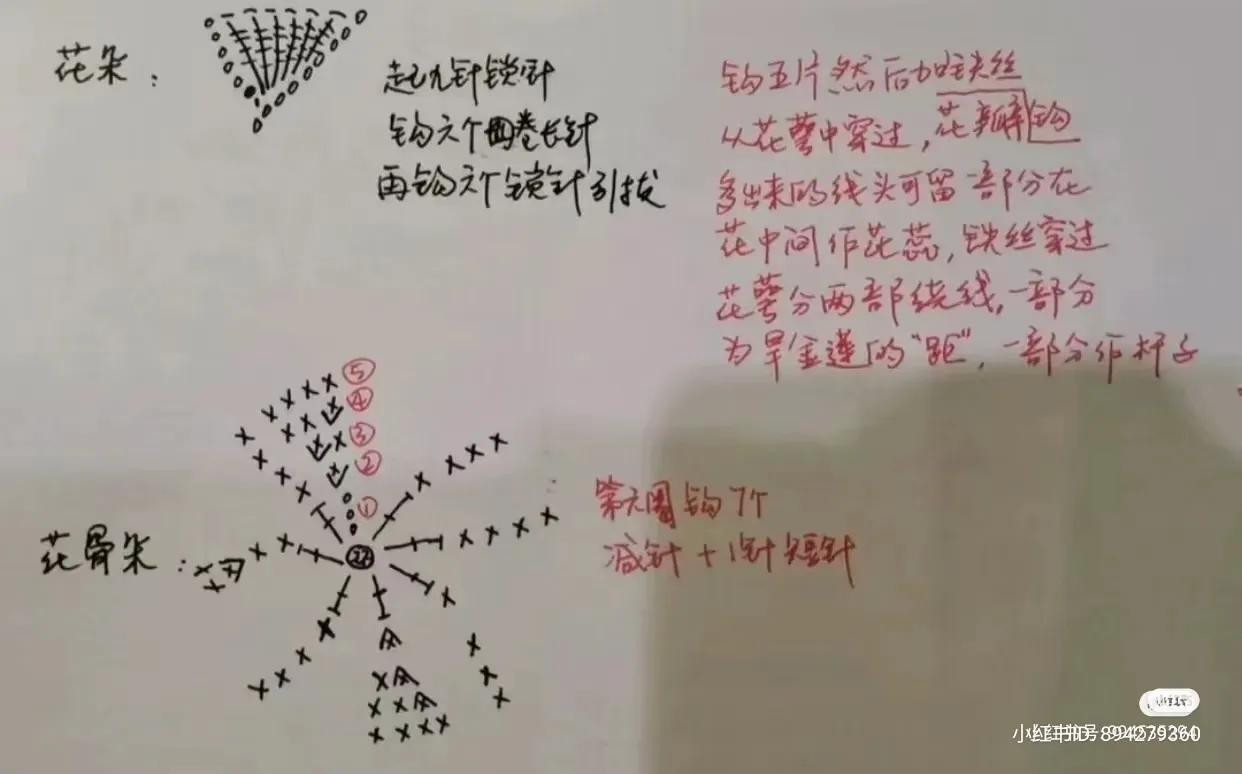 花朵：
起九针锁针
钩六个四卷长针
再钩六个锁针引拔
钩五片然后加铁丝
从花萼中穿过，花瓣钩
多出来的线头可留一部分在
花中间作花蕊，铁丝穿过
花萼分两部绕线，一部分
为旱金莲的“距”，一部分作杆子
⑤
④
③
②
①
花骨朵：
第六圈钩7个
减针+1针短针
小红书